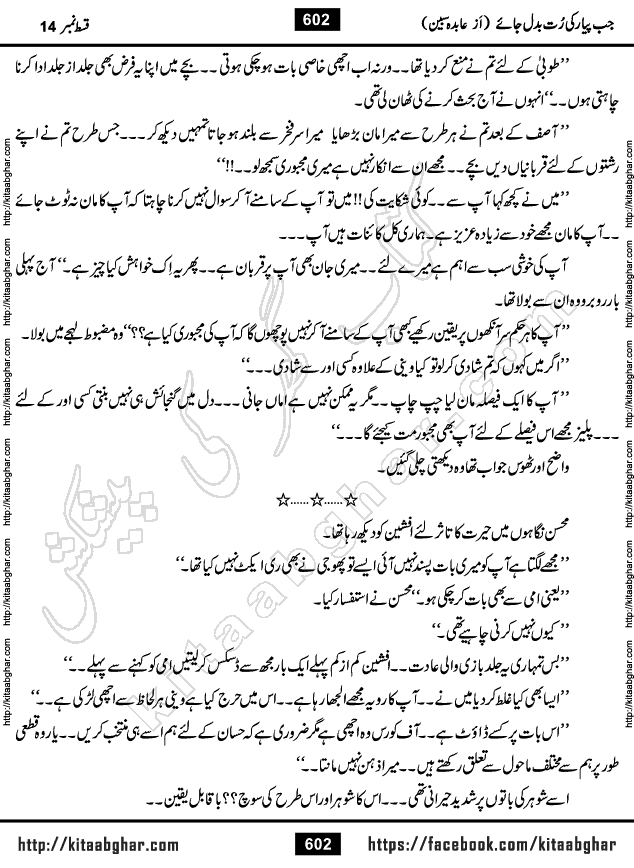 جب پیار کی رُت بدل جائے (از عابدہ سبین)
602
قسط نمبر 14
’’طوبیٰ کے لئے تم نے منع کر دیا تھا۔۔ورنہ اب اچھی خاصی بات ہو چکی ہوتی ۔۔بچے میں اپنا یہ فرض بھی جلد از جلد ادا کرنا
چاہتی ہوں۔۔‘‘انہوں نے آج بحث کرنے کی ٹھان لی تھی۔
’’آصف کے بعد تم نے ہر طرح سے میرا مان بڑھایا میرا سر فخر سے بلند ہو جاتا تمہیں دیکھ کر۔۔۔جس طرح تم نے اپنے
رشتوں کے لئے قربانیاں دیں بچے۔۔مجھے ان سے انکار نہیں ہے میری مجبوری سمجھ لو۔۔!!‘‘
’’میں نے کچھ کہا آپ سے۔۔کوئی شکایت کی!!میں تو آپ کے سامنے آ کر سوال نہیں کرنا چاہتا کہ آپ کا مان نہ ٹوٹ جائے
۔۔آپ کا مان مجھے خود سے زیادہ عزیز ہے۔ہماری کل کائنات ہیں آپ ۔۔۔
آپ کی خوشی سب سے اہم ہے میرے لئے ۔۔میری جان بھی آپ پر قربان ہے۔۔پھر یہ اِک خواہش کیا چیز ہے۔‘‘ آج پہلی
بار روبرو وہ ان سے بولا تھا۔
’’آپ کا ہر حکم سر آنکھوں پر یقین رکھیے کبھی آپ کے سامنے آ کر نہیں پوچھوں گا کہ آپ کی مجبوری کیا ہے؟؟‘‘وہ مضبوط لہجے میں بولا۔
’’اگر میں کہوں کہ تم شادی کر لو تو کیا وینی کے علاوہ کسی اور سے شادی ۔۔۔‘‘
’’آپ کا ایک فیصلہ مان لیا چپ چاپ ۔۔مگر یہ ممکن نہیں ہے اماں جانی ۔۔۔دل میں گنجائش ہی نہیں بنتی کسی اور کے لئے
۔۔۔پلیز مجھے اس فیصلے کے لئے آپ بھی مجبور مت کیجئے گا۔۔۔‘‘
واضح اور ٹھوس جواب تھا وہ دیکھتی چلی گئیں۔
☆......☆......☆
محسن نگاہوں میں حیرت کا تاثر لئے افشین کو دیکھ رہا تھا۔
’’مجھے لگتا ہے آپ کو میری بات پسند نہیں آئی ایسے تو پھو جی نے بھی ری ایکٹ نہیں کیا تھا۔‘‘
’’یعنی امی سے بھی بات کر چکی ہو۔‘‘محسن نے استفسار کیا۔
’’کیوں نہیں کرنی چاہیے تھی۔‘‘
’’بس تمہاری یہ جلد بازی والی عادت۔۔افشین کم از کم پہلے ایک بار مجھ سے ڈسکس کر لیتیں امی کو کہنے سے پہلے۔۔‘‘
’’ایسا بھی کیا غلط کر دیا میں نے۔۔آپ کا رویہ مجھے الجھا رہا ہے۔۔اس میں حرج کیا ہے وینی ہر لحاظ سے اچھی لڑکی ہے۔‘‘
’’اس بات پر کسے ڈاؤٹ ہے۔۔آف کورس وہ اچھی ہے مگر ضروری ہے کہ حسان کے لئے ہم اسے ہی منتخب کریں۔۔یار وہ قطعی
طور پر ہم سے مختلف ماحول سے تعلق رکھتے ہیں۔۔میرا ذہن نہیں مانتا۔۔‘‘
اسے شوہر کی باتوں پر شدید حیرانی تھی۔۔۔اس کا شوہر اور اس طرح کی سوچ؟؟ناقابل یقین۔۔
http://kitaabghar.com
602
https://facebook.com/kitaabghar
http://kitaabghar.com http://kitaabghar.com http://kitaabghar.com http://kitaabghar.com http://kitaabghar.com http://kitaabghar.com
http://kitaabghar.com http://kitaabghar.com http://kitaabghar.com http://kitaabghar.com http://kitaabghar.com http://kitaabghar.com
کتاب گھر کی پیشکش
kitaabghar.com